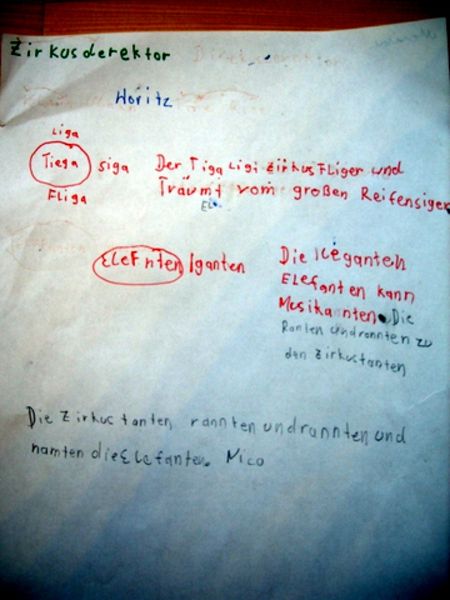 Zirkusderektor
Woritz
Liga
Tiega siga Der Tiga Ligi zirkus Fliger und
Fliga Träumt vom großen Reifensiger
EL
ELEFnten Iganten Die Ileganten
ELEfanten kann
Musikannten. Die
Ranten undrannten zu
den zirkustanten
Die Zirkustanten rannten undrannten und
namten dieELefanten. Nico